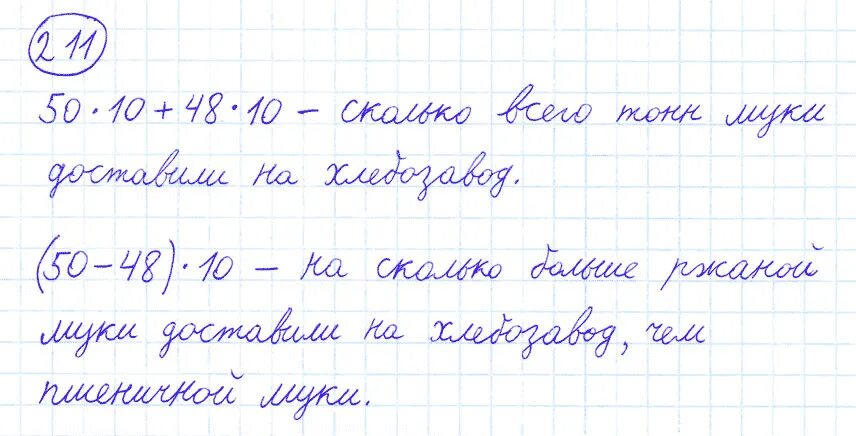 211
50·10+48·10 – сколько всего тонн муки
доставили на хлебозавод.
(50–48)·10 – на сколько больше ржаной
муки доставили на хлебозавод, чем
пшеничной муки.